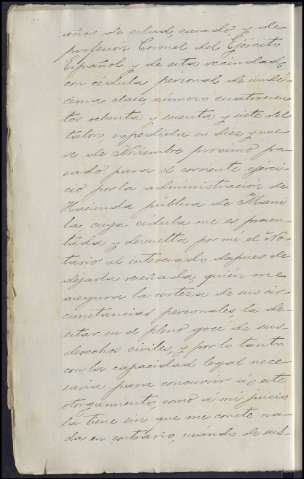 años de edad, casado y de
profesion Coronel del Ejército
Español y de esta vecindad,
con cédula personal de
clase, número cuatrocien
tos setenta y y siete del
talon expedida en diez y nue
ve de Noviembre proximo pa
sado para el corriente ejerci
cio por la administracion de
Hacienda pública de Mani
la, cuya cédula me es presen
tada y devuelta por mi el No
tario al interesado despues de
dejarla reseñada; quien me
asegura la certeza de sus cir
cunstancias personales la de
estar en el pleno goce de sus
derechos civiles, y por lo tanto
con la capacidad legal nece
saria para concurrir á este
otorgamiento, como á mi juicio
la tiene sin que me conste na
da en contrario,